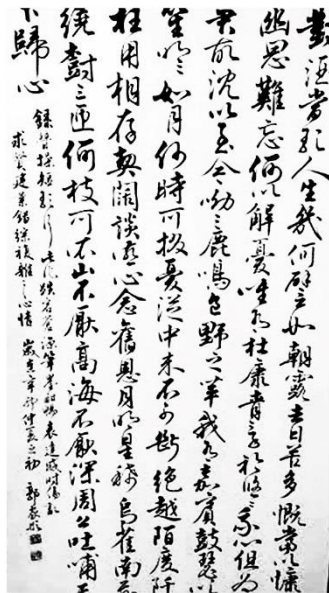 對酒當歌人生幾何譬如朝露去日苦多慨當以慷
幽思難忘何以解憂唯有杜康青青子衿悠悠我心但為
君故沈吟至今呦呦鹿鳴食野之苹我有嘉賓鼓瑟吹
笙明明如月何時可掇憂從中來不可斷絕越陌度阡
枉用相存契闊談讌心念舊恩月明星稀烏雀南飛
繞樹三匝何枝可依山不厭高海不厭深周公吐哺天
下歸心
錄曹操短歌行 筆墨酣暢表達感時傷亂
求賢建業錯綜複雜之心情 歲在辛卯仲夏之初 郭